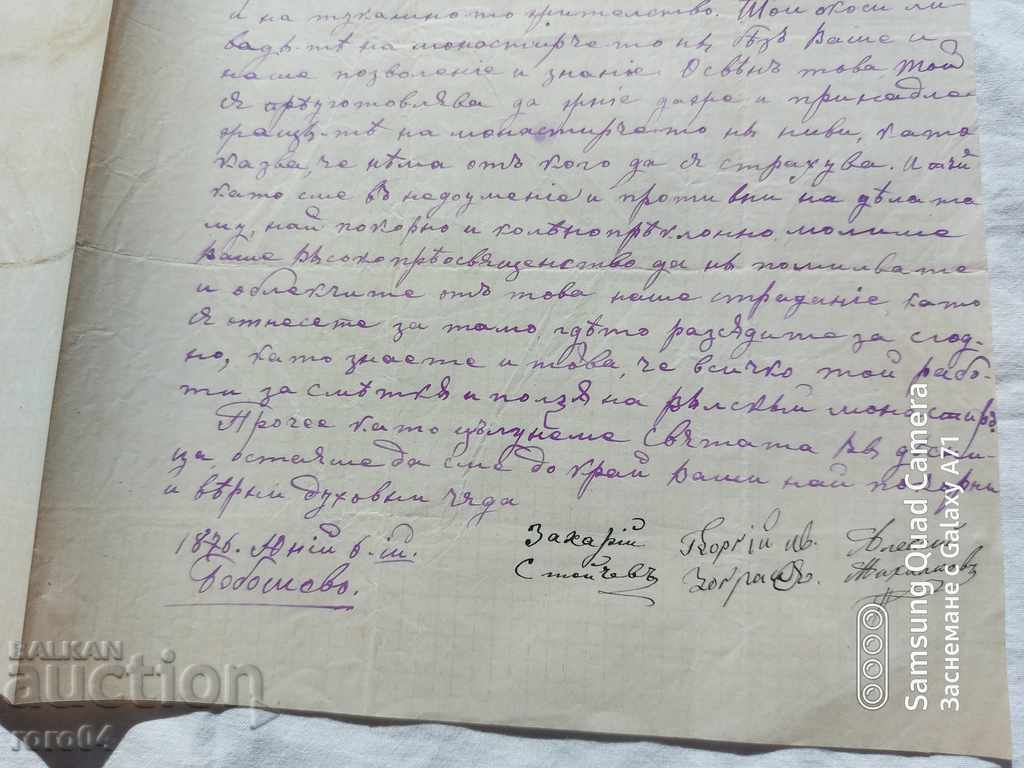 и на тукашното жителство. Той окоси ли-
вадѫтѣ на монастирчето ны безъ Ваше и
наше позволение и знание. Освѣнъ това той
сѧ прѣуготовлява да
на монастирчето ны ниви, като
казва, че нѣма отъ кого да сѧ страхува. И
като сме въ недоумение и противни на дѣлата
му, най покорно и колѣнопрѣклонно молиме
Ваше Высокопрѣосвященство да ны помилвате
и облекчите отъ това наше страдание като
сѧ отнесете за тамо гдѣто разсѫдите за сгод-
но, като знаете и това, че всичко той рабо-
ти за смѣткѫ и ползѫ на Рылскый монастиръ.
Прочее като цѣлунеме Свѧтата Ви десни-
ца, остаяме да сме до край Ваши най покорни
и вѣрни духовни чяда
1876. Юній 6-ій.
Добошево.
Захарій Георгій Ив. Алексій
Стойчевъ Михаиловъ
BALKAN
auction
roro04
Samsung Quad Camera
Заснемане с Galaxy A71